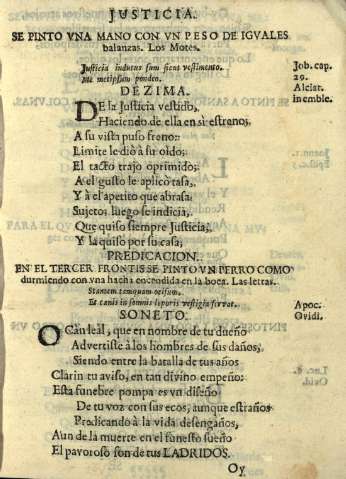 JUSTICIA.
SE PINTO VNA MANO CON VN PESO DE IGVALES
balanzas. Los Motes.
Justicia indutus sum sicut vestimento.
Me metipsum pondero.
Job. cap.
29.
Alciat.
in emble.
DEZIMA.
DE la Justicia vestido,
Haciendo de ella en sì estreno,
A su vista puso freno:
Limite le diò à su oìdo;
El tacto trajo oprimido;
A el gusto le aplicò tasa,
Y à el apetito que abrasa;
Sujeto; luego se indicia,
Que quiso siempre Justicia,
Y la quiso por su casa;
PREDICACION.
EN EL TERCER FRONTIS SE PINTO VN PERRO COMO
durmiendo con vna hacha encendida en la boca. Las letras.
Et canis in somnis leporis vestigia
Apoc.
Ovidi.
SONETO.
O Càn leal, que en nombre de tu dueño
Advertiste à los hombres de sus daños,
Siendo entre la batalla de tus años
Clarin tu aviso, en tan divino empeño:
Esta funebre pompa es vn diseño
De tu voz con sus ecos, aunque estraños
Predicando à la vida desengaños,
Aun de la muerte en el funesto sueño
El pavoroso son de tus LADRIDOS.
Oy